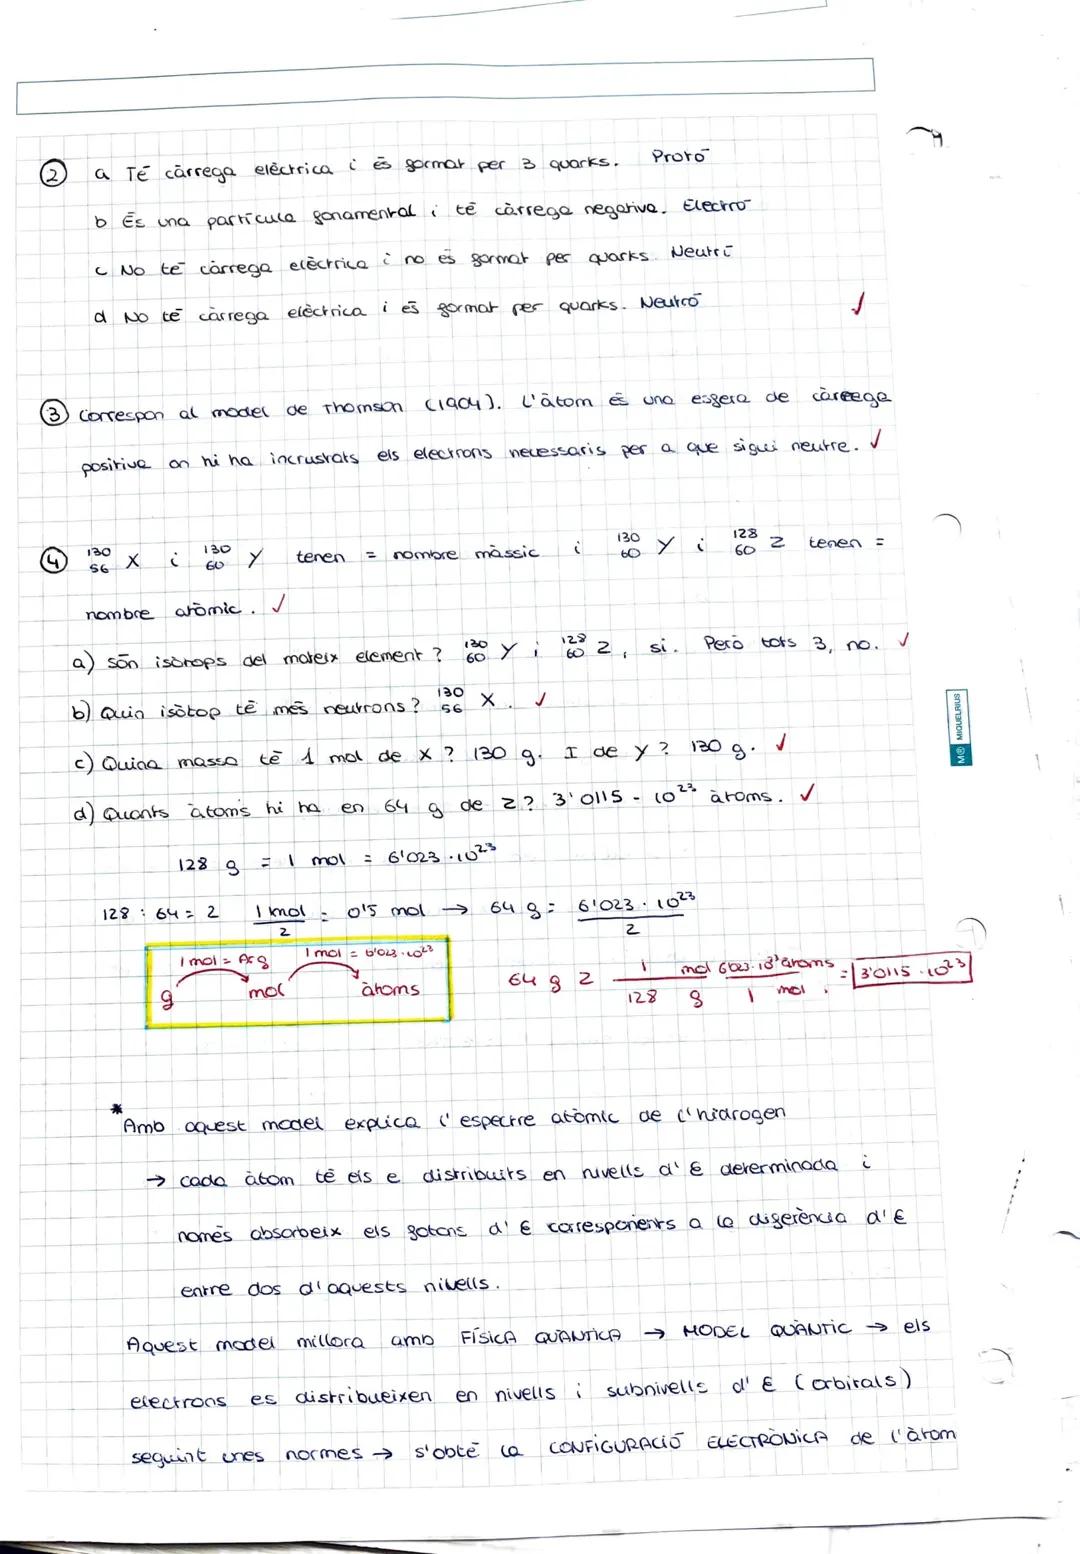 ② a Té càrrega elèctrica i és format per 3 quarks. Protó
b És una partícula fonamental i té càrrega negativa. Electró
c No té càrrega elèctrica i no és format per quarks. Neutrí
d No té càrrega elèctrica i és format per quarks. Neutró ✓
③ Correspon al model de Thomson (1904). L'àtom és una esfera de càrrega
positiva on hi ha incrustats els electrons necessaris per a que sigui neutre. ✓
④ ¹³⁰₅₆ X i ¹³⁰₆₀ Y tenen = nombre màssic i ¹³⁰₆₀ Y i ¹²⁸₆₀ Z tenen =
nombre atòmic. ✓
a) són isòtops del mateix element? ¹³⁰₆₀ Y i ¹²⁸₆₀ Z, si. Però tots 3, no. ✓
b) Quin isòtop té més neutrons? ¹³⁰₅₆ X. ✓
c) Quina massa té 1 mol de X? 130 g. I de Y? 130 g. ✓
d) Quants àtoms hi ha en 64 g de Z? 3'0115 · 10²³ àtoms. ✓
128 g = 1 mol = 6'023 · 10²³
128 : 64 = 2 1 mol/2 = 0'5 mol → 64 g = 6'023 · 10²³/2
1 mol = Ar g 1 mol = 6'023 · 10²³
g mol àtoms
64 g Z 1 mol/128 g 6'023 · 10²³ àtoms/1 mol = 3'0115 · 10²³
* Amb aquest model explica l'espectre atòmic de l'hidrogen
→ cada àtom té els e distribuits en nivells d'E determinada i
només absorbeix els fotons d'E corresponents a la diferència d'E
entre dos d'aquests nivells.
Aquest model millora amb FÍSICA QUÀNTICA → MODEL QUÀNTIC → els
electrons es distribueixen en nivells i subnivells d'E (orbitals)
seguint unes normes → s'obté la CONFIGURACIÓ ELECTRÒNICA de l'àtom
MR MIQUELRIUS